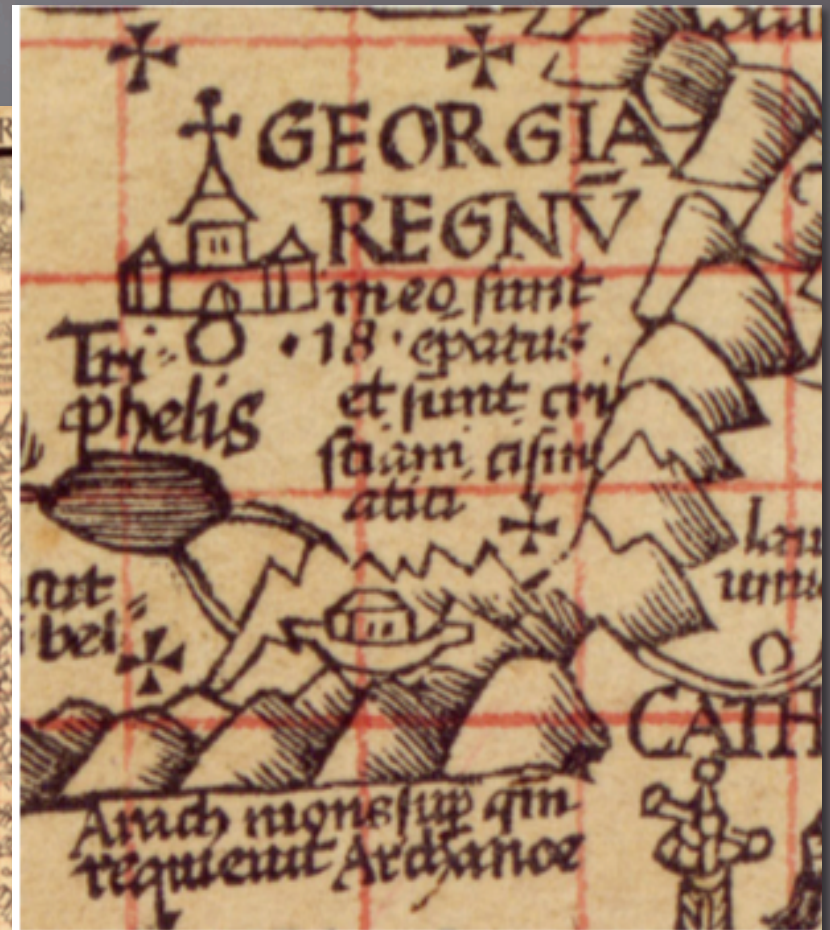 GEORGIA
REGNŪ
in eo sunt
·18· epatus
et sunt cri
stiani, cism
atici
Tri-
phelis
cut
bel
CATH
Arach mons sup qm
requieuit Archa noe